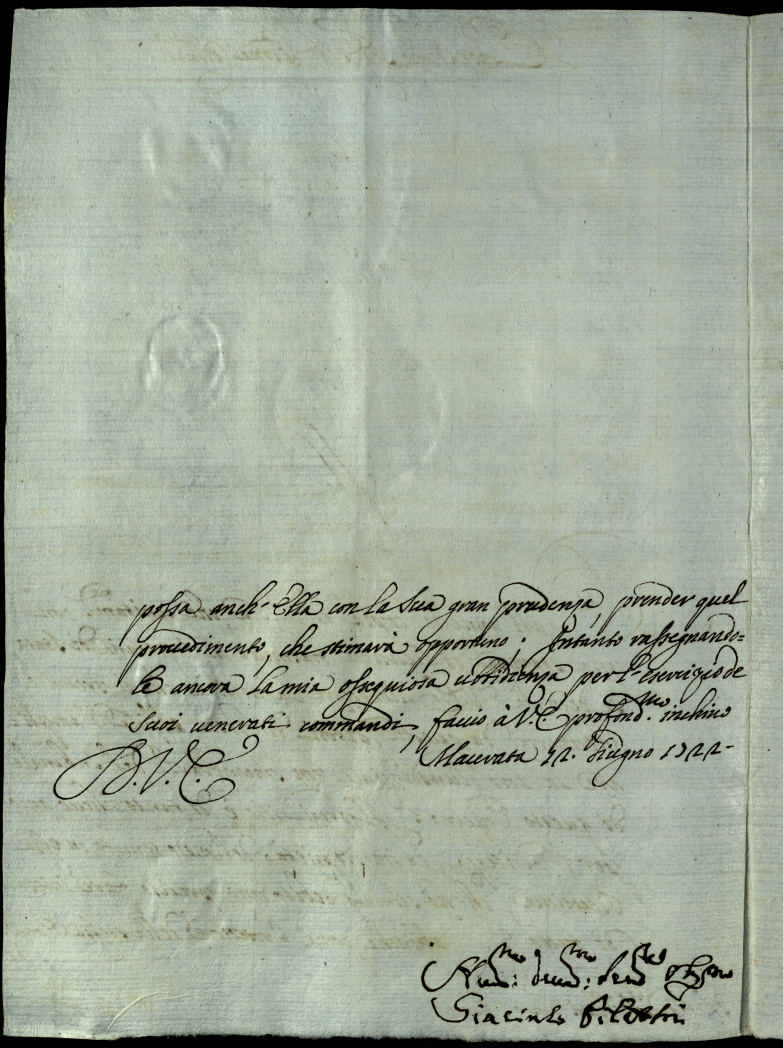 possa anch' Ella con la Sua gran prudenza prender quel
procedimento, che stimarà opportuno. Intanto rassegnando=
le ancora la mia ossequiosa ubbidienza per l'esercizio de
suoi venerati commandi, faccio à V. E. profond.mo inchino
D. V. E.
Macerata 12. Giugno 1722-
Hum:mo deuo:mo ser.re obl.mo
Giacinto Filottij